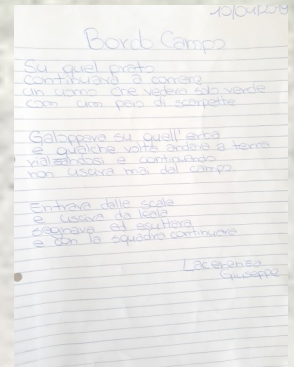 10/04/2019
Bordo Campo
Su quel prato
continuava a correre
un uomo che vedeva solo verde
con un paio di scarpette
Galoppava su quell'erba
e qualche volta andava a terra
rialzandosi e continuando
non usciva mai dal campo
Entrava dalle scale
e usciva da leale
segnava ed esultava
e con la squadra continuava
Lacerenza
Giuseppe